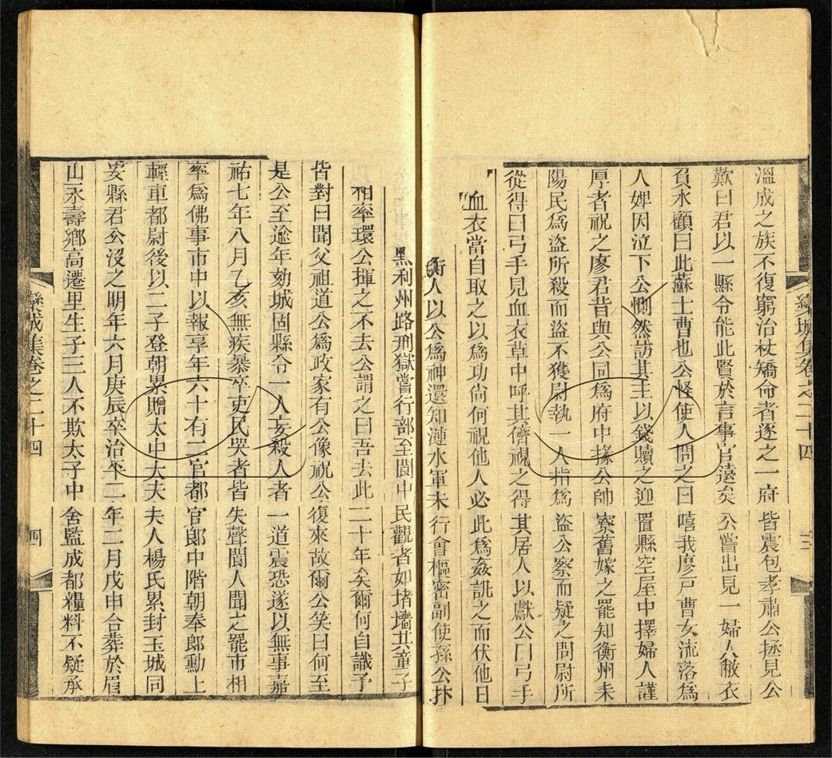 欒城集卷之二十四　三
溫成之族不復窮治杖矯命者逐之一府皆震包孝肅公拯見公
歎曰君以一縣令能此賢於言事官遠矣公嘗出見一婦人敝衣
負水顧曰此蘇士曹也公怪使人問之曰嘻我廖戶曹女流落爲
人婢因泣下公惻然訪其主以錢贖之迎置縣空屋中擇婦人謹
厚者視之廖君昔與公同爲府中掾公帥寮舊嫁之罷知衡州未
陽民爲盜所殺而盜不獲尉執一人指爲盜公察而疑之問尉所
從得曰弓手見血衣草中呼其儕視之得其居人以獻公曰弓手
血衣當自取之以爲功尚何視他人必此爲姦訊之而伏他日
衡人以公爲神還知漣水軍未行會樞密副使孫公抃
爲利州路刑獄嘗行部至閬中民觀者如堵墻其童子
相率環公揮之不去公謂之曰吾去此二十年矣爾何自識予
皆對曰聞父祖道公爲政家有公像祝公復來故爾公笑曰何至
是公至逾年劾城固縣令一人妄殺人者一道震恐遂以無事嘉
祐七年八月乙亥無疾暴卒吏民哭者皆失聲閬人聞之罷市相
率爲佛事市中以報享年六十有二官都官郎中階朝奉郎勳上
輕車都尉後以二子登朝累贈太中大夫夫人楊氏累封玉城同
安縣君公沒之明年六月庚辰卒治平二年二月戊申合葬於眉
山永壽鄉高遷里生子三人不欺太子中舍監成都糧料不疑承
欒城集卷之二十四　四